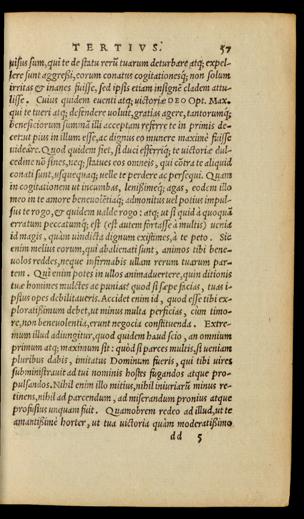 TERTIVS. 57
uisus sum, qui te de statu rerũ tuarum deturbare atq; expel-
lere sunt aggreßi, eorum conatus cogitationesq; non solum
irritas & inanes fuisse, sed ipsis etiam insignẽ cladem attu-
lisse. Cuius quidem euenti atq; uictoriæ DEO Opt. Max.
qui te tueri atq; defendere uoluit, gratias agere, tantorumq;
beneficiorum summã illi acceptam referre te in primis de-
cet: ut pius in illum esse, ac dignus eo munere maximè fuisse
uideare. Quod quidem fiet, si duci efferriq; te uictoriæ dul-
cedine nõ sines, neq; statues eos omneis, qui cõtra te aliquid
conati sunt, usquequaq; uelle te perdere ac persequi. Quam
in cogitationem ut incumbas, lenißimeq; agas, eodem illo
meo in te amore beneuolẽtiaq; admonitus uel potius impul-
sus te rogo, & quidem ualde rogo: atq; ut si quid à quoquã
erratum peccatumq; est (est autem fortasse à multis) uenia
id magis, quàm uindicta dignum existimes, à te peto. Sic
enim melius eorum, qui abalienati sunt, animos tibi bene-
uolos reddes, neque infirmabis ullam rerum tuarum par-
tem. Qui enim potes in ullos animaduertere, quin ditionis
tuæ homines mulctes ac punias? quod si sæpe facias, tuas i-
psius opes debilitaueris. Accidet enim id, quod esse tibi ex-
ploratißimum debet, ut minus multa perficias, cùm timo-
re, non beneuolentia, erunt negocia constituenda. Extre-
mum illud adiungitur, quod quidem haud scio, an omnium
primum atq; maximum sit: quòd si parces multis, si ueniam
pluribus dabis, imitatus Dominum fueris, qui tibi uires
subministrauit ad tui nominis hostes fugandos atque pro-
pulsandos. Nihil enim illo mitius, nihil iniuriarũ minus re-
tinens, nihil ad parcendum, ad miserandum pronius atque
profusius unquam fuit. Quamobrem redeo ad illud, ut te
amantißimè horter, ut tua uictoria quàm moderatißimo
dd 5